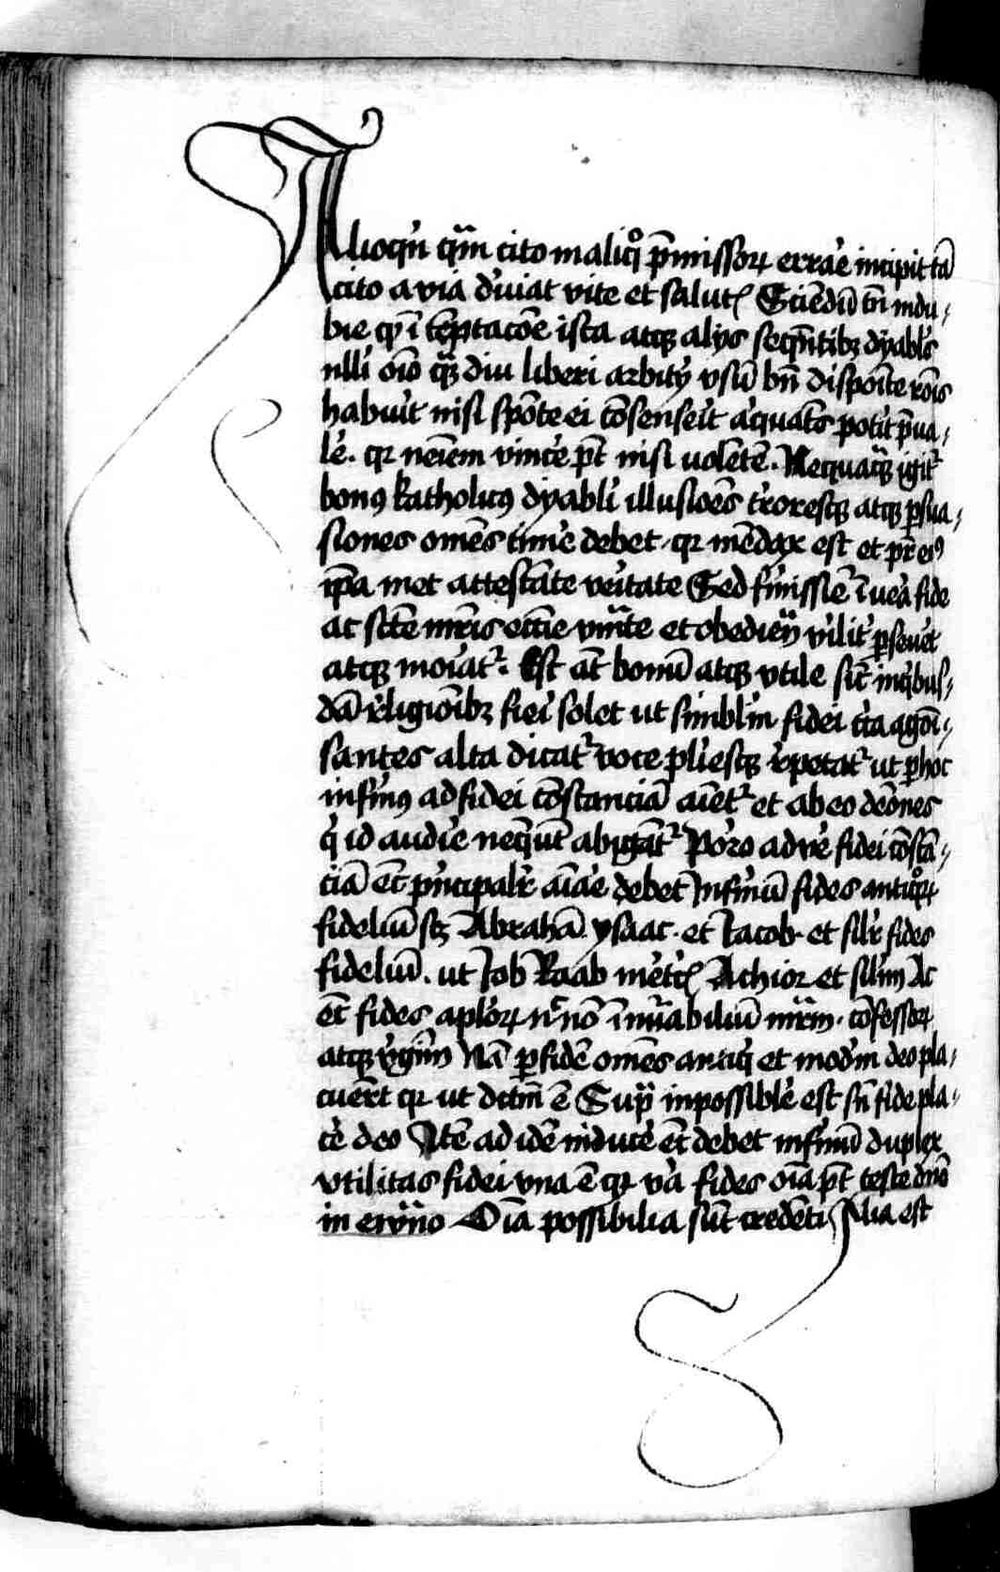 Alioq̇n qm̄ cito in aliq̊ p̄missoꝝ errar̾e incipit tā
cito a via d̾uiat vite et salutꝭ Sciēdū tn̄ indu⸗
bie qꝫ ī tēptacōe ista atqꝫ alijs seqn̄tibꝫ dyabls̾
nlli̾ oīo qꝫ̄ diu liberi arbitrij vsū bn̄ dispoīte rōis
habuit nisi spōte ei cōsenserit aliquatꝰ potuit p̄ua⸗
le̾. qꝛ nēiem vince̾ pt̄ nisi uolētē. Nequaqꝫ̄ igit᷑
bonꝯ katholicꝯ dyabli illusiōes t̾roresqꝫ atqꝫ ꝑsua⸗
siones omēs time̾ debet qꝛ mēdax est et pr̄ eiꝯ
ip̄a met attestāte ve̾itate Sed fi̾missīe ī ue̾a fide
ac sct̄e mr̄is eccīe vnīte et obediēn vi̾lit̾ ꝑseue̾t
atqꝫ moriat᷑. Est at̄ bonū atqꝫ vtile sic̄ in qi̇bus⸗
dā r̾ligiōibꝫ fie̾i solet ut simblm̄ fidei cͥca agoni⸗
santes alta dicat᷑ voce pli̾esqꝫ r̾petat᷑ ut ꝑ hoc
infi̾mꝯ ad fidei cōstanciā aīet᷑ et ab eo dēones
qi̇ id audir̾e neq̄ūt abigāt᷑ Porro ad ve̾ fidei cōstā⸗
ciā ec̄ pͥncipalr̄ aīar̾e debet Infi̾mū fides antiq̊ꝝ
fideliū scꝫ Abrahā. ysaac. et Iacob. et silr̄ fides
fideliū. ut Iob Raab me̾tcꝭ Achior et silīm Ac
ec̄ fides aploꝝ nͨnō īnuābiliū mr̄m. cōfessoꝝ
atqꝫ vgi̾m̄ Nā ꝑ fidē omēs antiqi̇ et mod̾ni deo pla⸗
cuer̄t qꝛ ut dctm̄ ē Supͣ inpossibile est sn̄ fide pla⸗
ce̾ deo Itē ad idē induce̾ ec̄ debet infi̾mū duplex
vtilitas fidei vna ē qꝛ ve̾a fides oīa pt̄ teste dn̄o
in ewn̄o Oīa possibilia sūt credēti Alia est